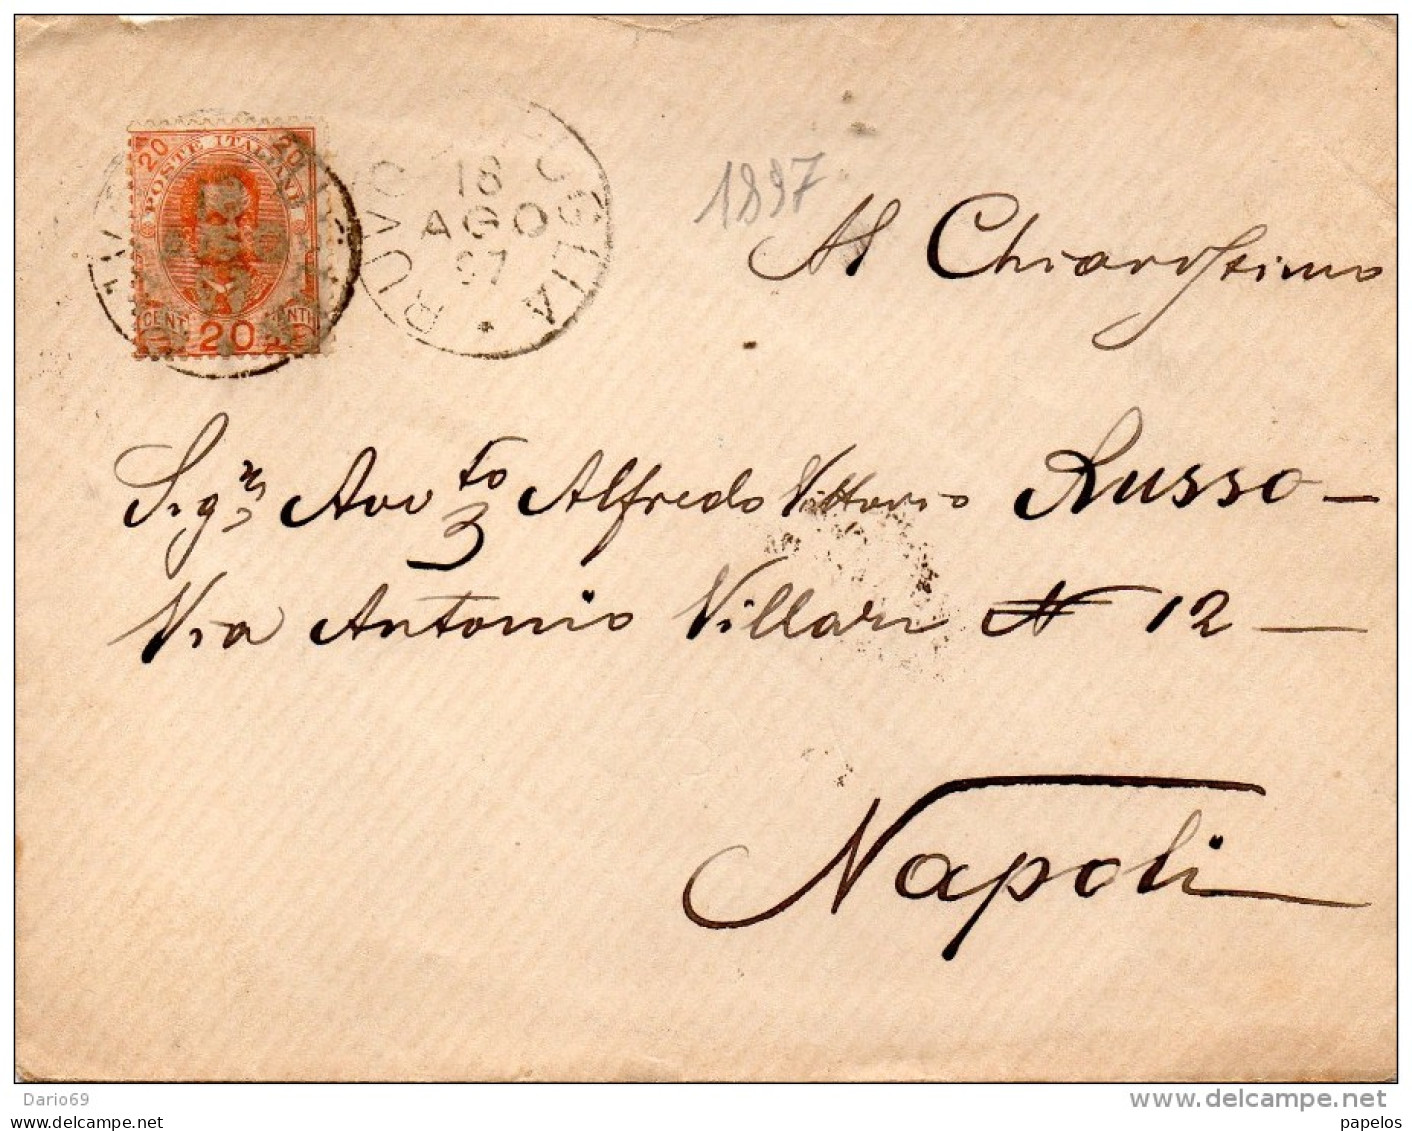 20 20
POSTE ITALIANE
CENT 20
RUVO PUGLIA *
18
AGO
97
1897
Al Chiarissimo
Sigr Avvto Alfredo Vittorio Russo —
3
Via Antonio Villari N 12 —
Napoli
delcampe.net
Dario69
papelos